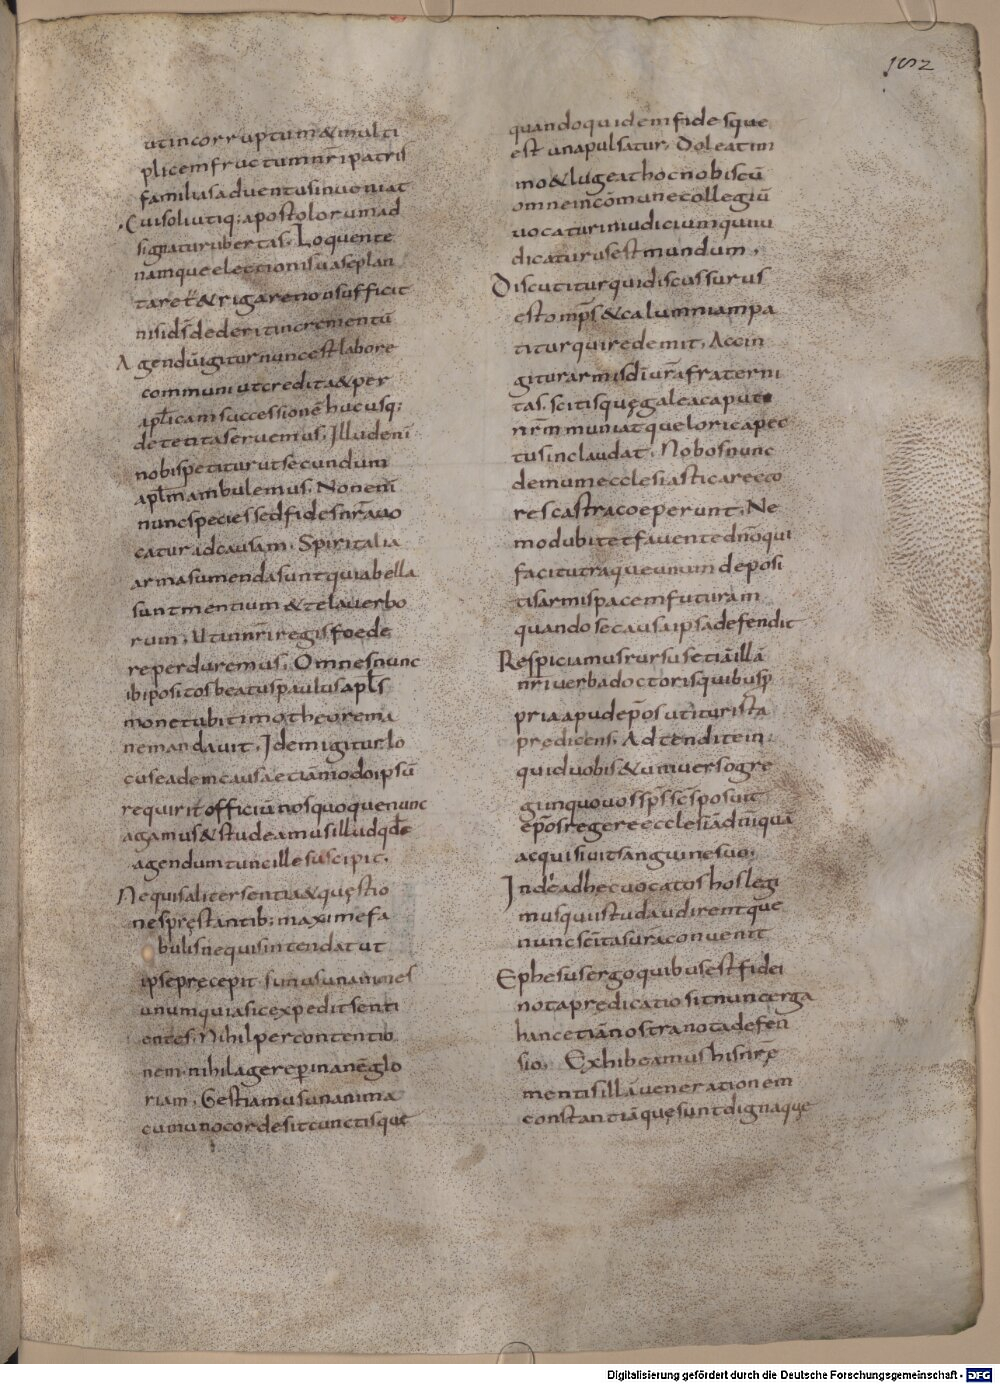 152
ut incorruptum & multi
plicem fructum nr̄i patris
familias adventus inveniat
Cui soli utiq; apostolorum ad
signatur ubertas. Loquente
namque electionis vase plan
tare & rigare non sufficit
nisi dš dederit incrementū
Agendū igitur nunc est labore
communi ut credita & per
apl̄icam successionē hucusq;
detenta servemus. Illud eni
nobis petitur ut secundum
apl̄m ambulemus. Non enī
nunc species sed fides nr̄a vo
catur ad causam. Spiritalia
arma sumenda sunt quia bella
sunt mentium & tela verbo
rum. Ut in nr̄i regis foede
re perduremus. Omnes nunc
ibi positos beatus paulus apl̄s
monet ubi timotheo rema
ne mandavit. Idem igitur lo
cus eadem causa etiā modo ipsū
requirit officiū nos quoque nunc
agamus & studeamus illud qd̄
agendum tunc ille suscipit.
Nequis aliter sentia & quęstio
nes pręstantib; maxime fa
bulis nequis intendat ut
ipse precepit simus unanimes
unum quia sic expedit senti
entes. Nihil per contentio
nem. nihil agere p̱ inanē glo
riam. Gestiamus unanima
cum uno corde sit cunctisque
quandoquidem fides que
est una pulsatur. Doleat im
mo & lugeat hoc nobiscū
omne in cōmune collegiū
vocatur in iudicium qui iu
dicaturus est mundum.
Discutitur qui discussurus
est omps̄ & calumniam pa
titur qui redemit. Accin
gitur armis dī urā fraterni
tas. scitis quę galea caput
nr̄m muniat que lorica pec
tus includat. Nobos nunc
demum ecclesiasticare&o
res castra coeperunt. Ne
mo dubitet favente dnō qui
facit utraque unum deposi
tis armis pacem futuram
quando se causa ipsa defendit
Respiciamus rursus etiā illā
nr̄i verba doctoris quibus p
pria apud epōs utitur ista
predicens. Adtendite in
quid vobis & universo gre
gi in quo vos sps̄ sc̄s posuit
epōs regere ecclesiā dn̄i quā
acquisivit sanguine suo;
Inde adhec vocatos hos legi
mus qui istud audirent que
nunc scītas urā convenit
Ephesus ergo quibus est fidei
nota predicatio sit nunc erga
hanc etiā nostra nota defen
sio. Exhibeamus his nrę
mentis illā venerationem
constantiā quę sunt dignaque
Digitalisierung gefördert durch die Deutsche Forschungsgemeinschaft - DFG